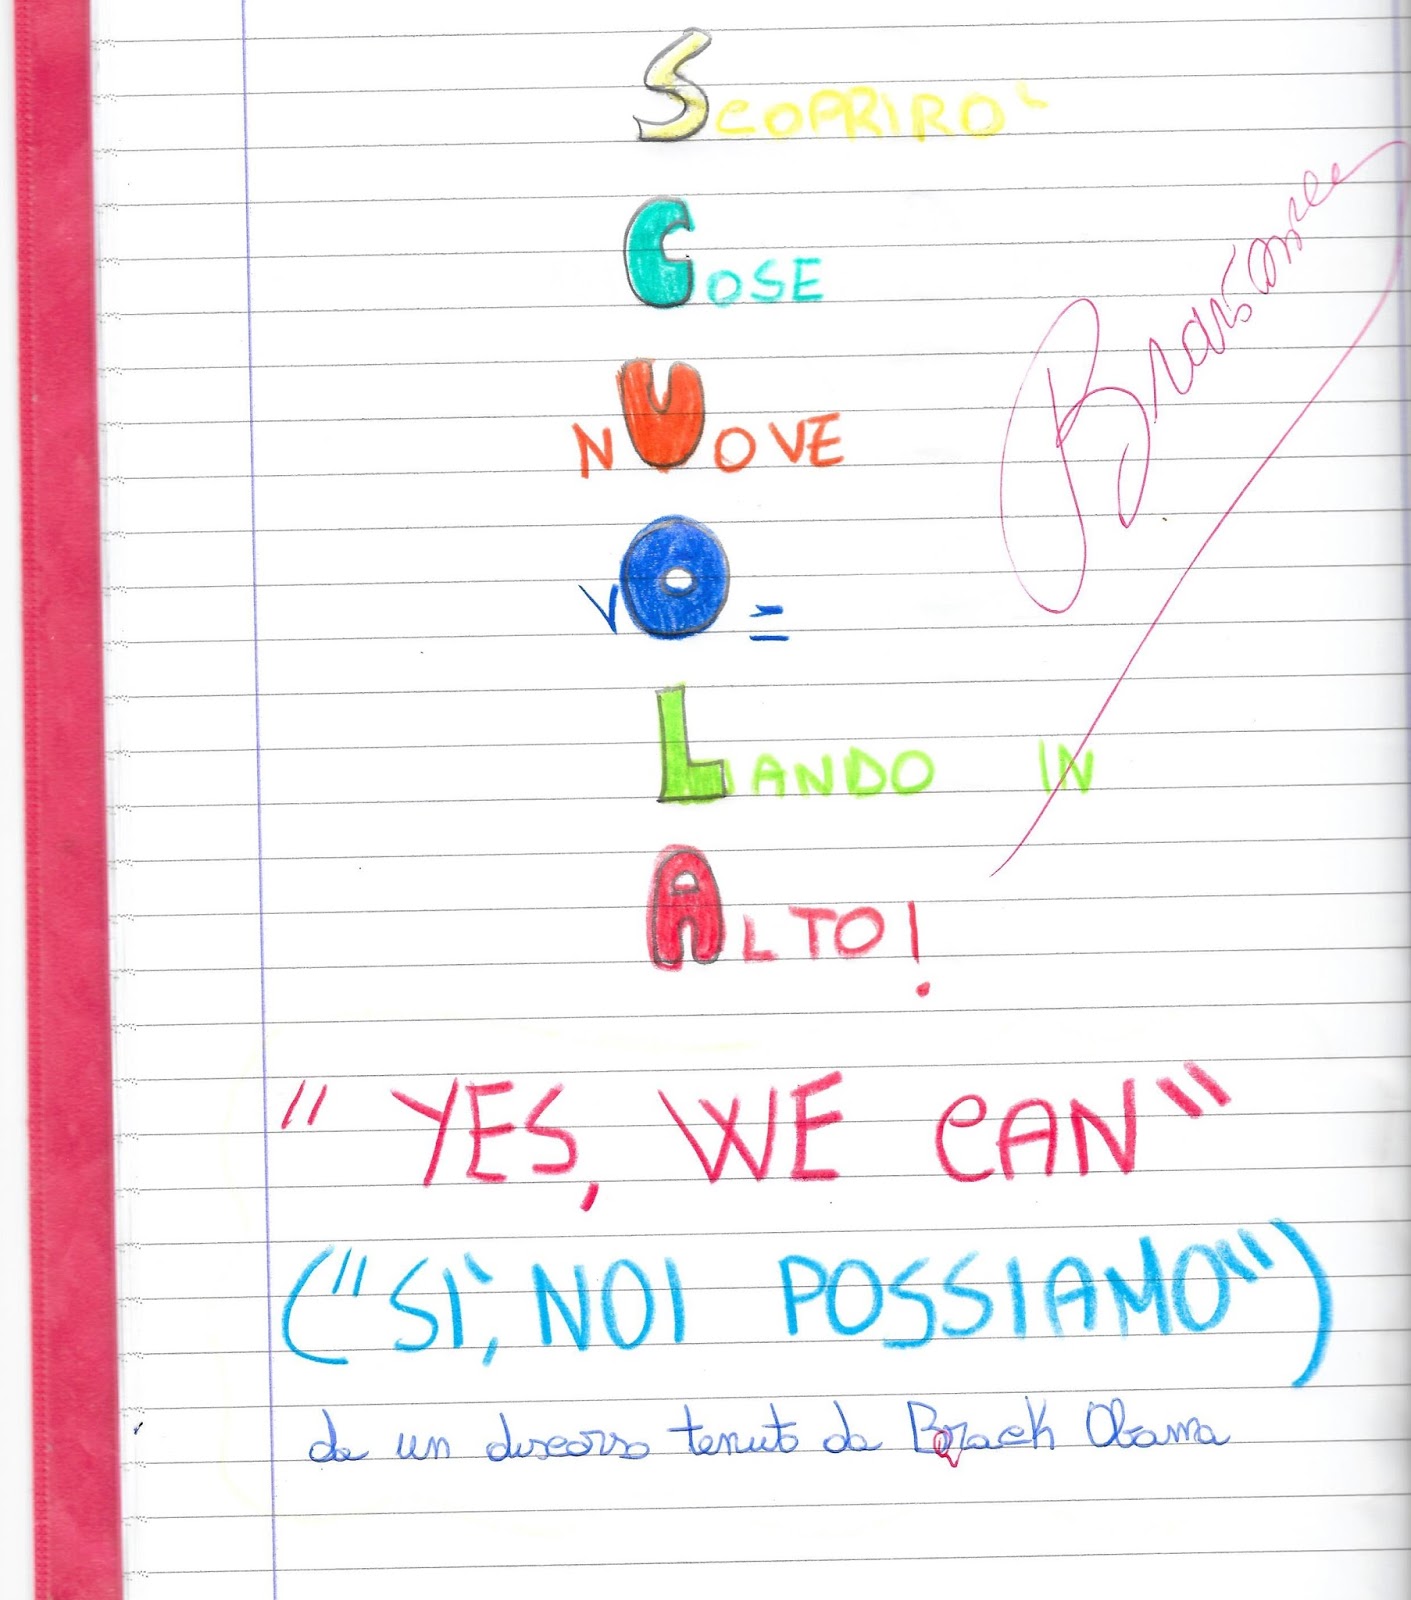 SCOPRIRO'
COSE
NUOVE
VO=
LANDO IN
ALTO!
"YES, WE CAN"
("SI', NOI POSSIAMO")
da un discorso tenuto da Barack Obama